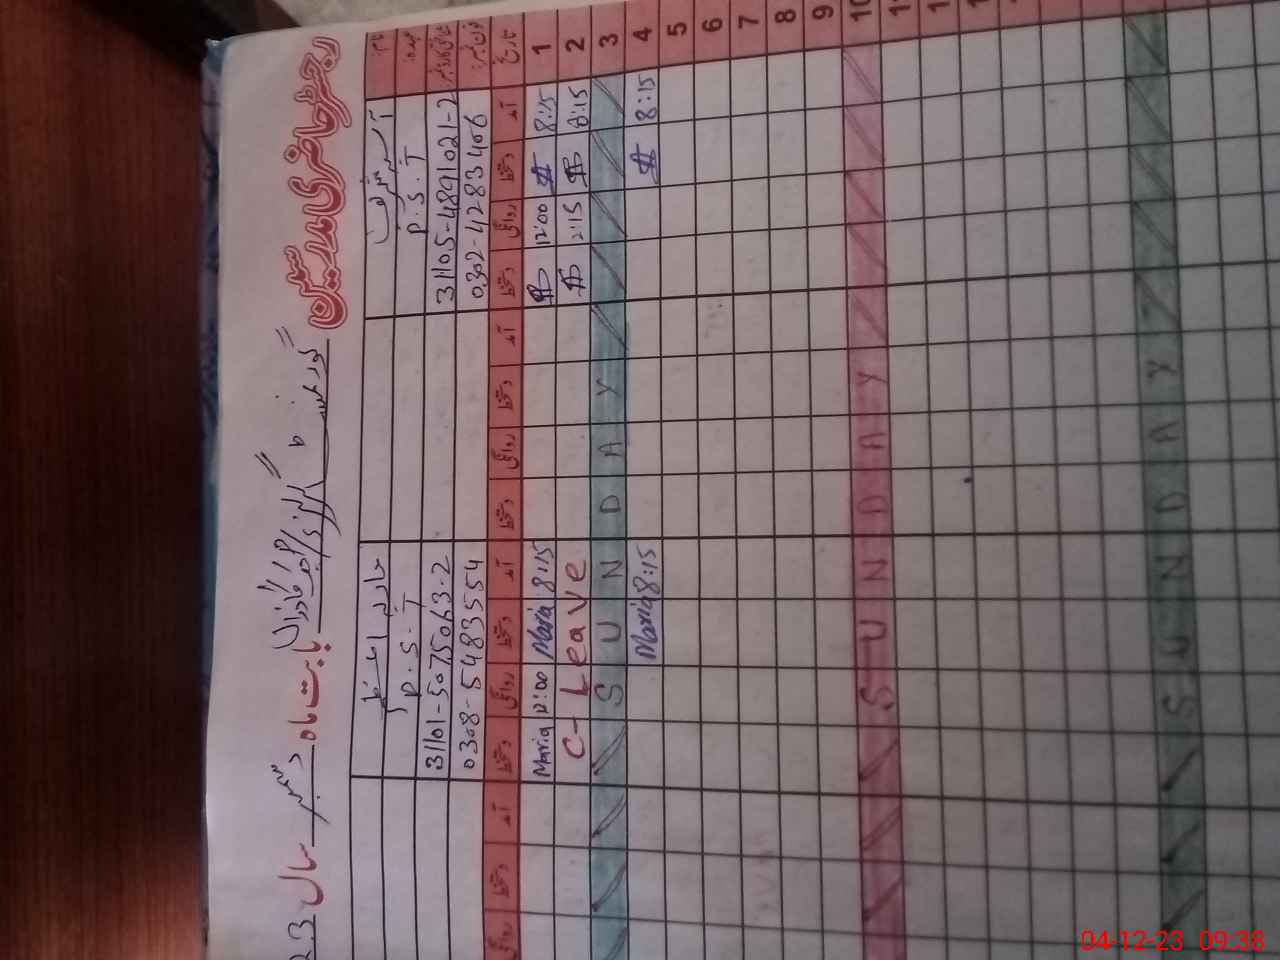 رجسٹر حاضری مدرسین
گورنمنٹ گرلز
بابت ماہ دسمبر سال
نام
عہدہ
تاریخ
P.S.T
P.S.T
31105-4891021-2
31101-5075063-2
0302-4283406
0308-5483554
آمد دستخط روانگی دستخط آمد دستخط روانگی دستخط آمد دستخط روانگی دستخط آمد دستخط روانگی
1 8:15 12:00 8:15 Maria 12:00 Maria
2 8:15 2:15 C-Leave
3 SUNDAY
4 8:15 8:15 Maria
5
6
7
8
9
10 SUNDAY
SUNDAY
04-12-23 09:38